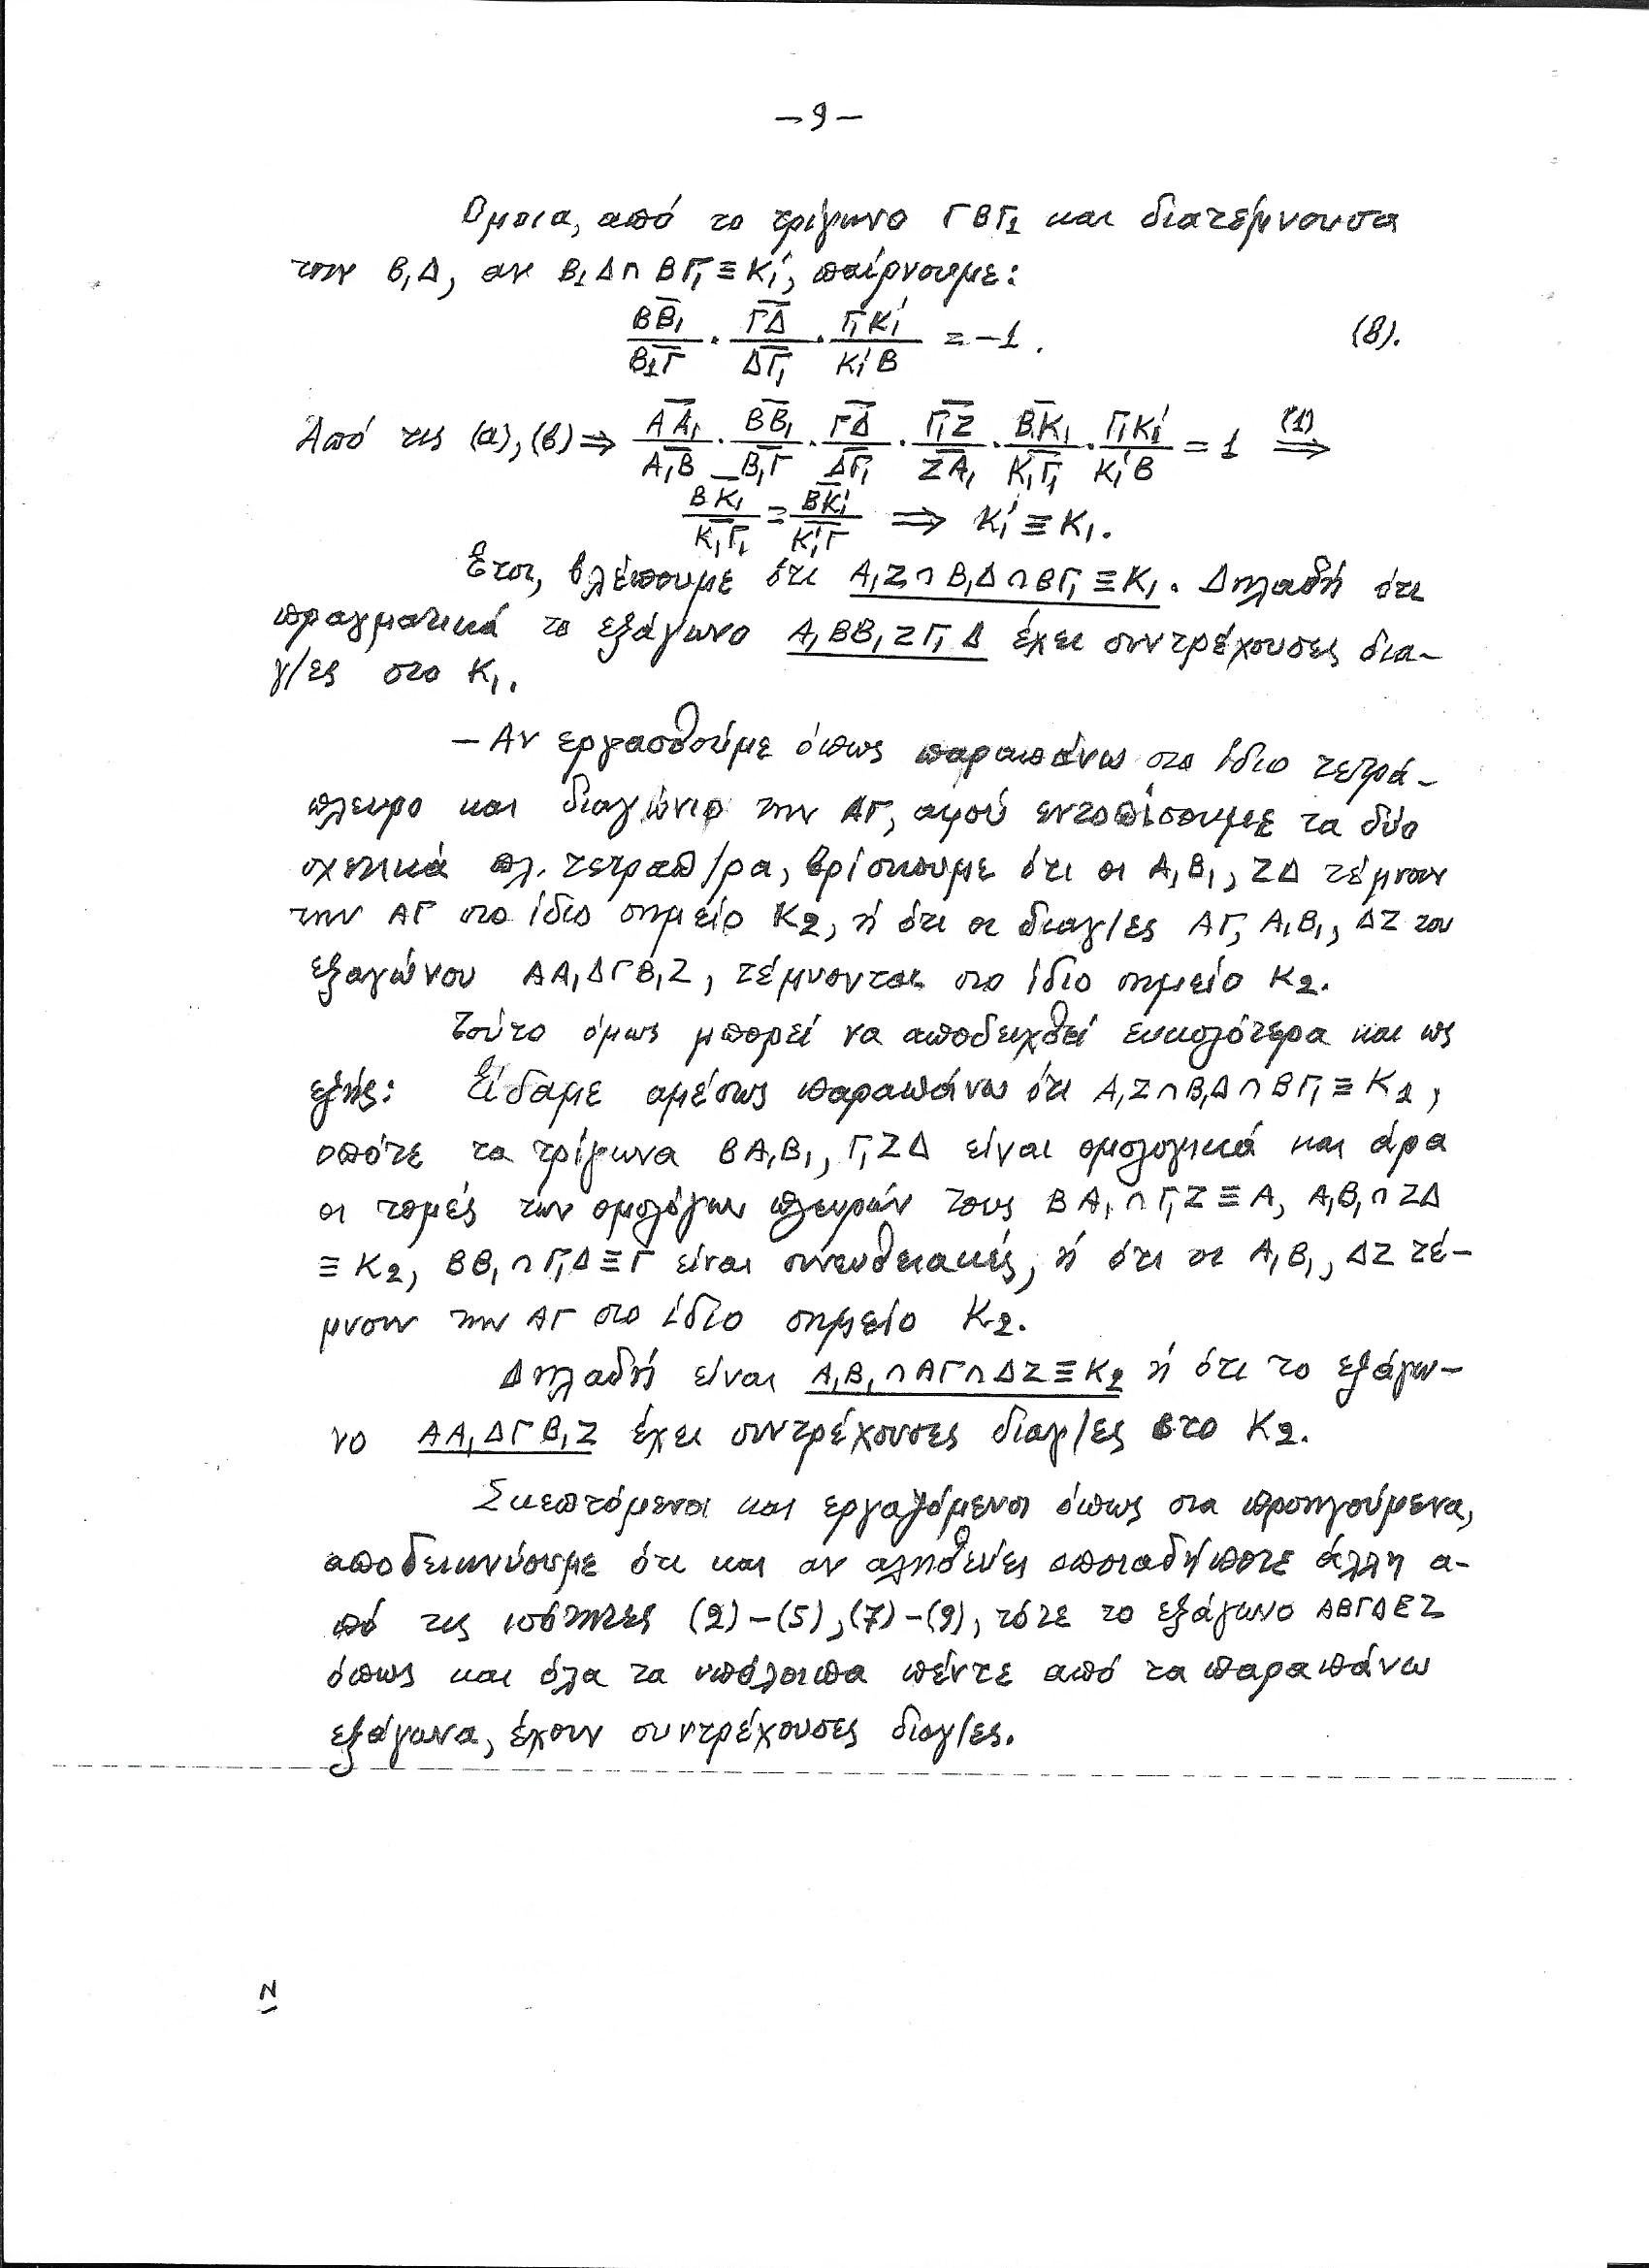 – 9 –
Όμοια, από το τρίγωνο ΓΒΓ₁ και διατέμνουσα
την Β₁Δ, αν Β₁Δ∩ΒΓ₁≡Κ₁', παίρνουμε:
ΒΒ₁/Β₁Γ · ΓΔ/ΔΓ₁ · Γ₁Κ₁'/Κ₁'Β = –1. (β).
Από τις (α), (β) ⇒ ΑΑ₁/Α₁Β · ΒΒ₁/Β₁Γ · ΓΔ/ΔΓ₁ · Γ₁Ζ/ΖΑ₁ · ΒΚ₁/Κ₁Γ₁ · Γ₁Κ₁'/Κ₁'Β = 1 (1)⇒
ΒΚ₁/Κ₁Γ₁ = ΒΚ₁'/Κ₁'Γ ⇒ Κ₁' ≡ Κ₁.
Έτσι, βλέπουμε ότι Α₁Ζ∩Β₁Δ∩ΒΓ₁≡Κ₁. Δηλαδή ότι
πραγματικά το εξάγωνο Α₁ΒΒ₁ΖΓ₁Δ έχει συντρέχουσες δια–
γ/ες στο Κ₁.
– Αν εργασθούμε όπως παραπάνω στο ίδιο τετρά–
πλευρο και διαγώνιο την ΑΓ, αφού εντοπίσουμε τα δύο
σχετικά πλ. τετραπ/ρα, βρίσκουμε ότι οι Α₁Β₁, ΖΔ τέμνουν
την ΑΓ στο ίδιο σημείο Κ₂, ή ότι οι διαγ/ες ΑΓ, Α₁Β₁, ΔΖ του
εξαγώνου ΑΑ₁ΔΓΒ₁Ζ, τέμνονται στο ίδιο σημείο Κ₂.
Τούτο όμως μπορεί να αποδειχθεί ευκολότερα και ως
εξής: Είδαμε αμέσως παραπάνω ότι Α₁Ζ∩Β₁Δ∩ΒΓ₁≡Κ₂,
οπότε τα τρίγωνα ΒΑ₁Β₁, Γ₁ΖΔ είναι ομολογικά και άρα
οι τομές των ομολόγων πλευρών τους ΒΑ₁∩Γ₁Ζ≡Α, Α₁Β₁∩ΖΔ
≡Κ₂, ΒΒ₁∩Γ₁Δ≡Γ είναι συνευθειακές, ή ότι οι Α₁Β₁, ΔΖ τέ–
μνουν την ΑΓ στο ίδιο σημείο Κ₂.
Δηλαδή είναι Α₁Β₁∩ΑΓ∩ΔΖ≡Κ₂ ή ότι το εξάγω–
νο ΑΑ₁ΔΓΒ₁Ζ έχει συντρέχουσες διαγ/ες στο Κ₂.
Σκεπτόμενοι και εργαζόμενοι όπως στα προηγούμενα,
αποδεικνύουμε ότι και αν αληθεύει οποιαδήποτε άλλη α–
πό τις ισότητες (2)–(5), (7)–(9), τότε το εξάγωνο ΑΒΓΔΕΖ
όπως και όλα τα υπόλοιπα πέντε από τα παραπάνω
εξάγωνα, έχουν συντρέχουσες διαγ/ες.
Ν